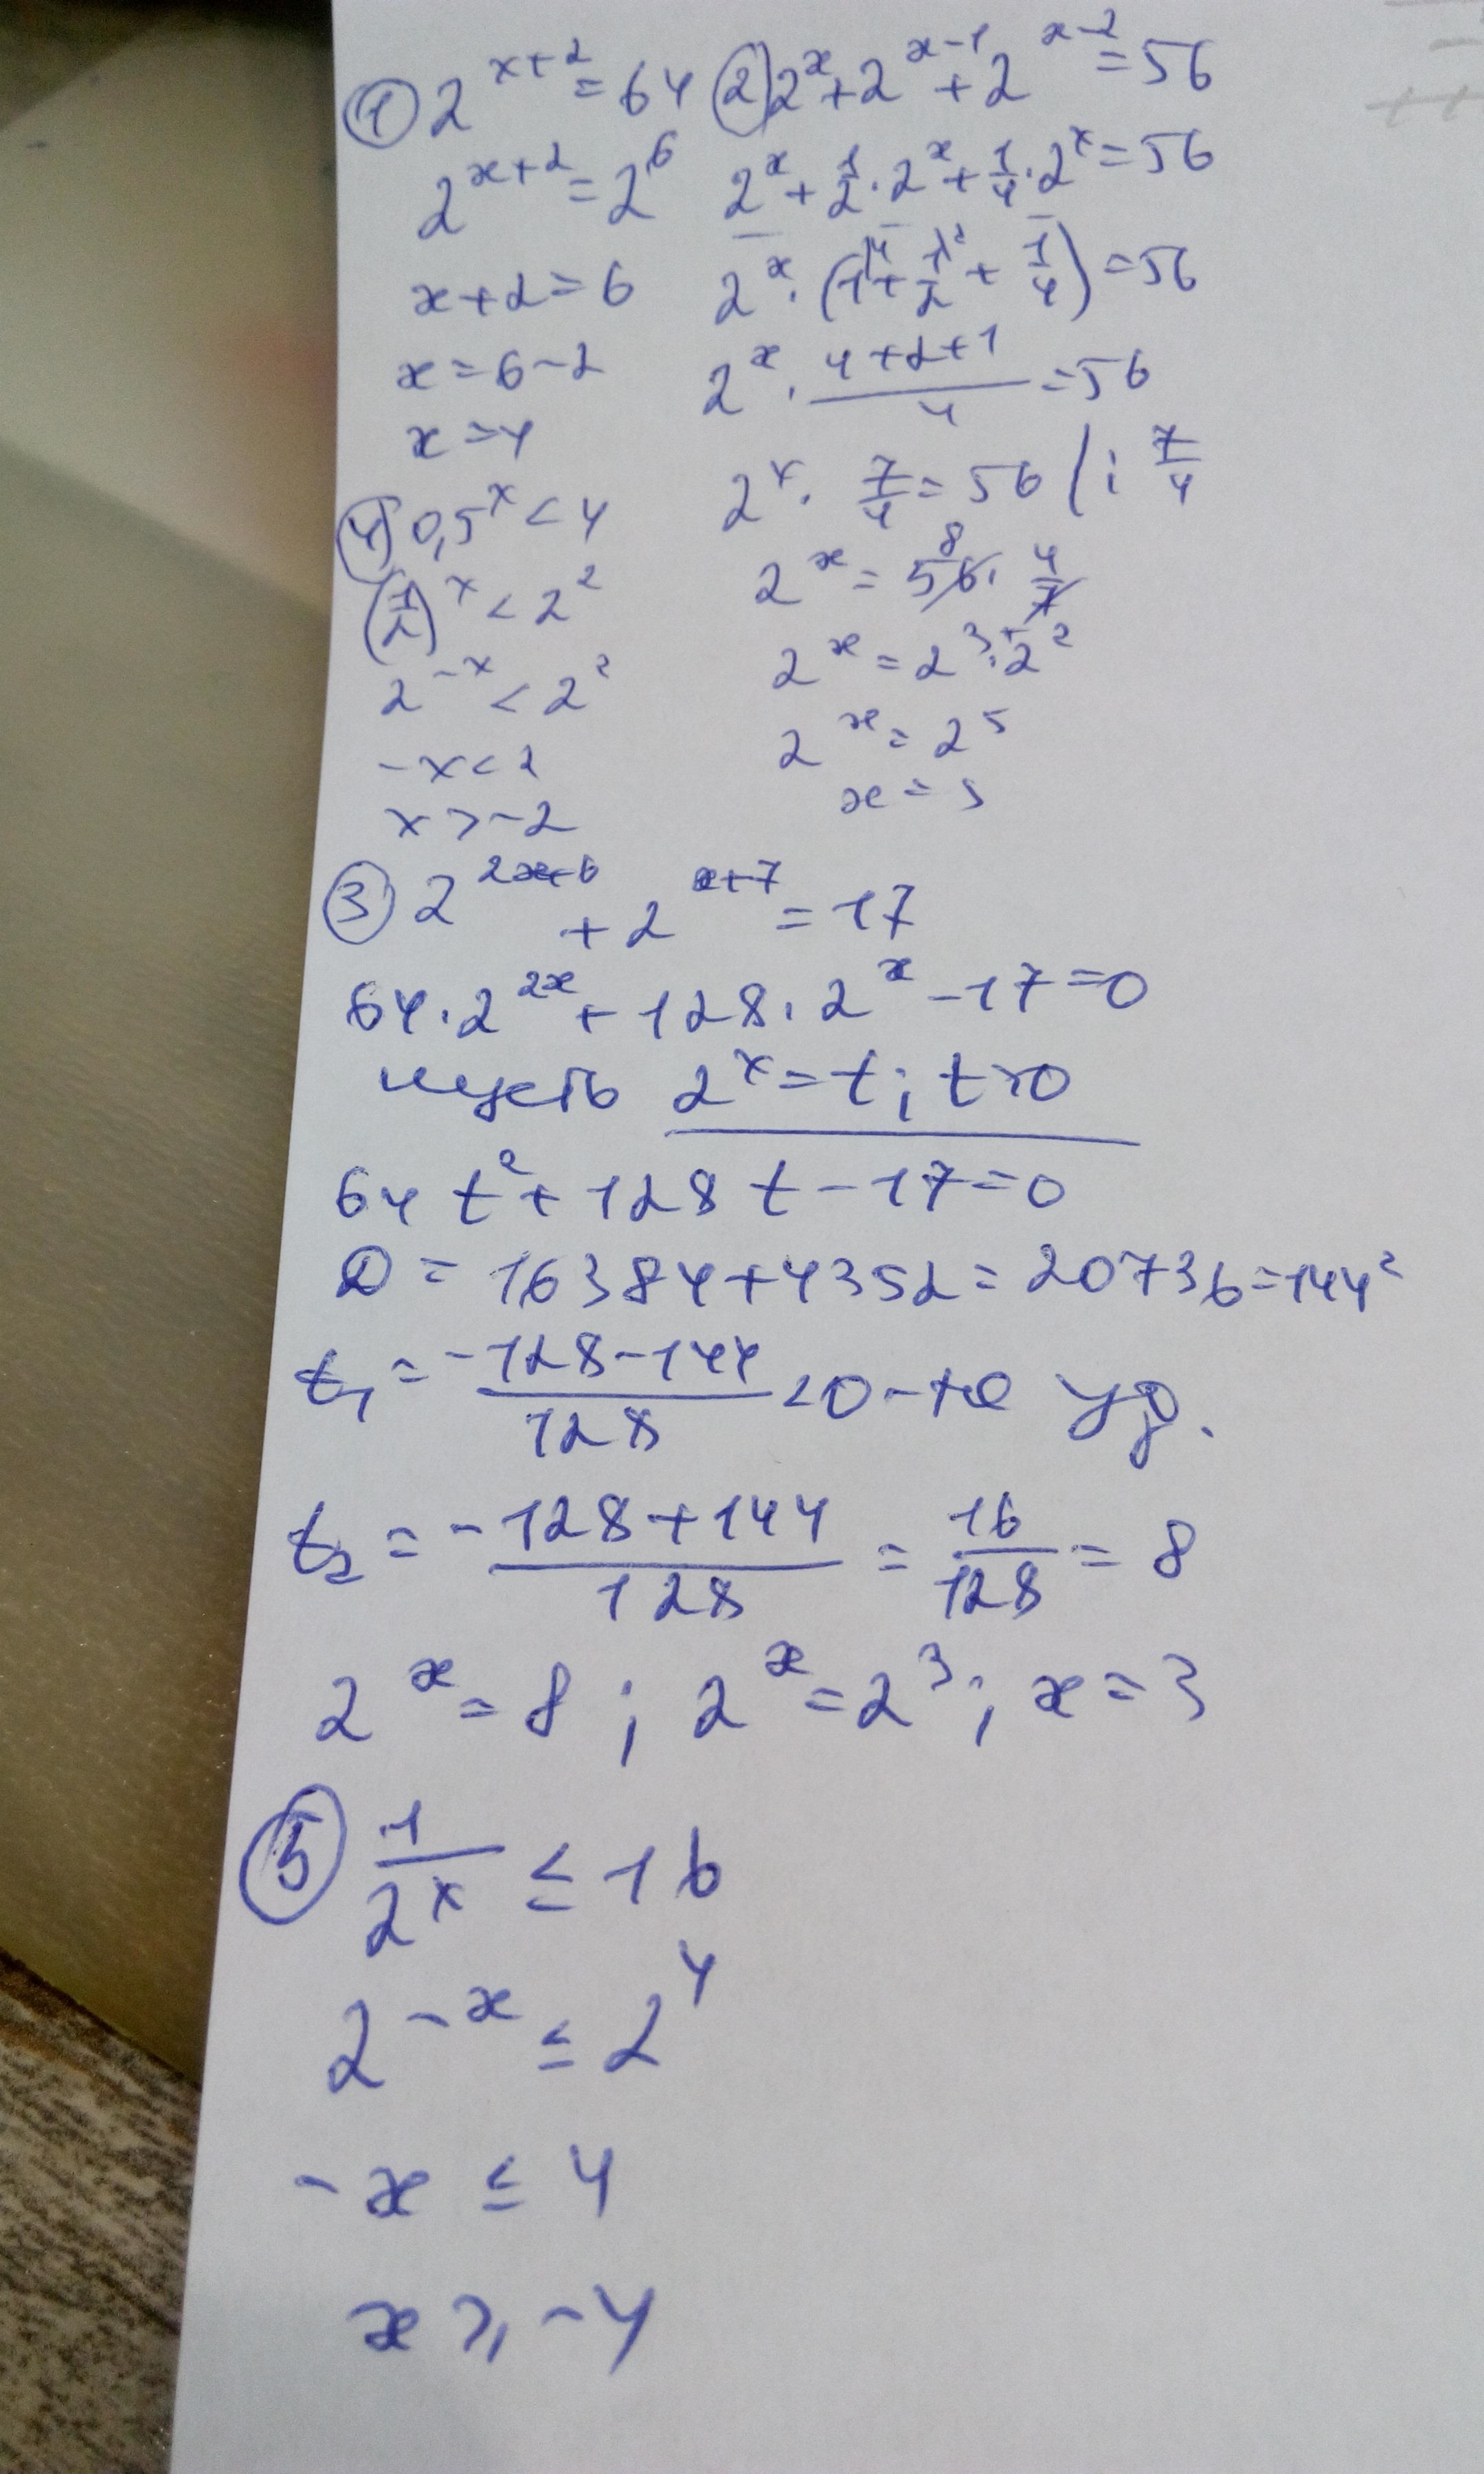 ① 2^(x+2) = 64
2^(x+2) = 2^6
x+2=6
x=6-2
x=4
② 2^x + 2^(x-1) + 2^(x-2) = 56
2^x + 1/2 · 2^x + 1/4 · 2^x = 56
2^x · (1^4 + 1/2^2 + 1/4) = 56
2^x · (4+2+1)/4 = 56
2^x · 7/4 = 56 | : 7/4
2^x = 56^8 · 4/7
2^x = 2^3 · 2^2
2^x = 2^5
x = 5
④ 0,5^x < 4
(1/2)^x < 2^2
2^(-x) < 2^2
-x < 2
x > -2
③ 2^(2x+6) + 2^(x+7) = 17
64 · 2^(2x) + 128 · 2^x - 17 = 0
пусть 2^x = t; t>0
64 t^2 + 128 t - 17 = 0
D = 16384 + 4352 = 20736 = 144^2
t₁ = (-128-144)/128 < 0 - не уд.
t₂ = (-128+144)/128 = 16/128 = 8
2^x = 8 ; 2^x = 2^3 ; x = 3
⑤ 1/2^x ≤ 16
2^(-x) ≤ 2^4
-x ≤ 4
x ≥ -4